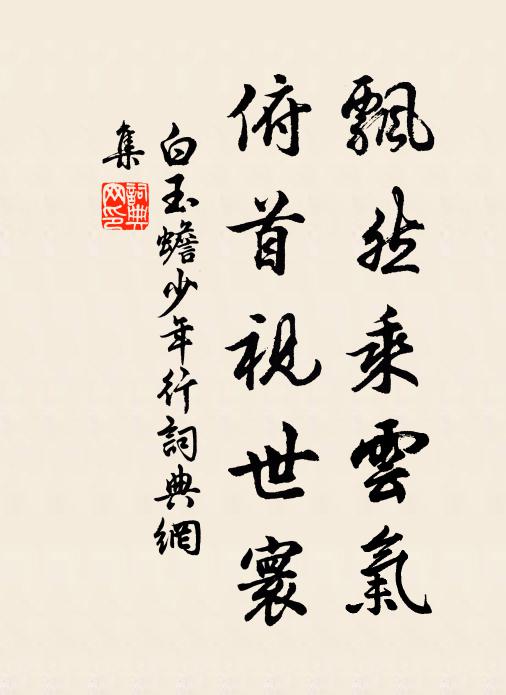 飄然乘雲氣
俯首視世寰
白玉蟾少年行詞典網
集
詞典
网印